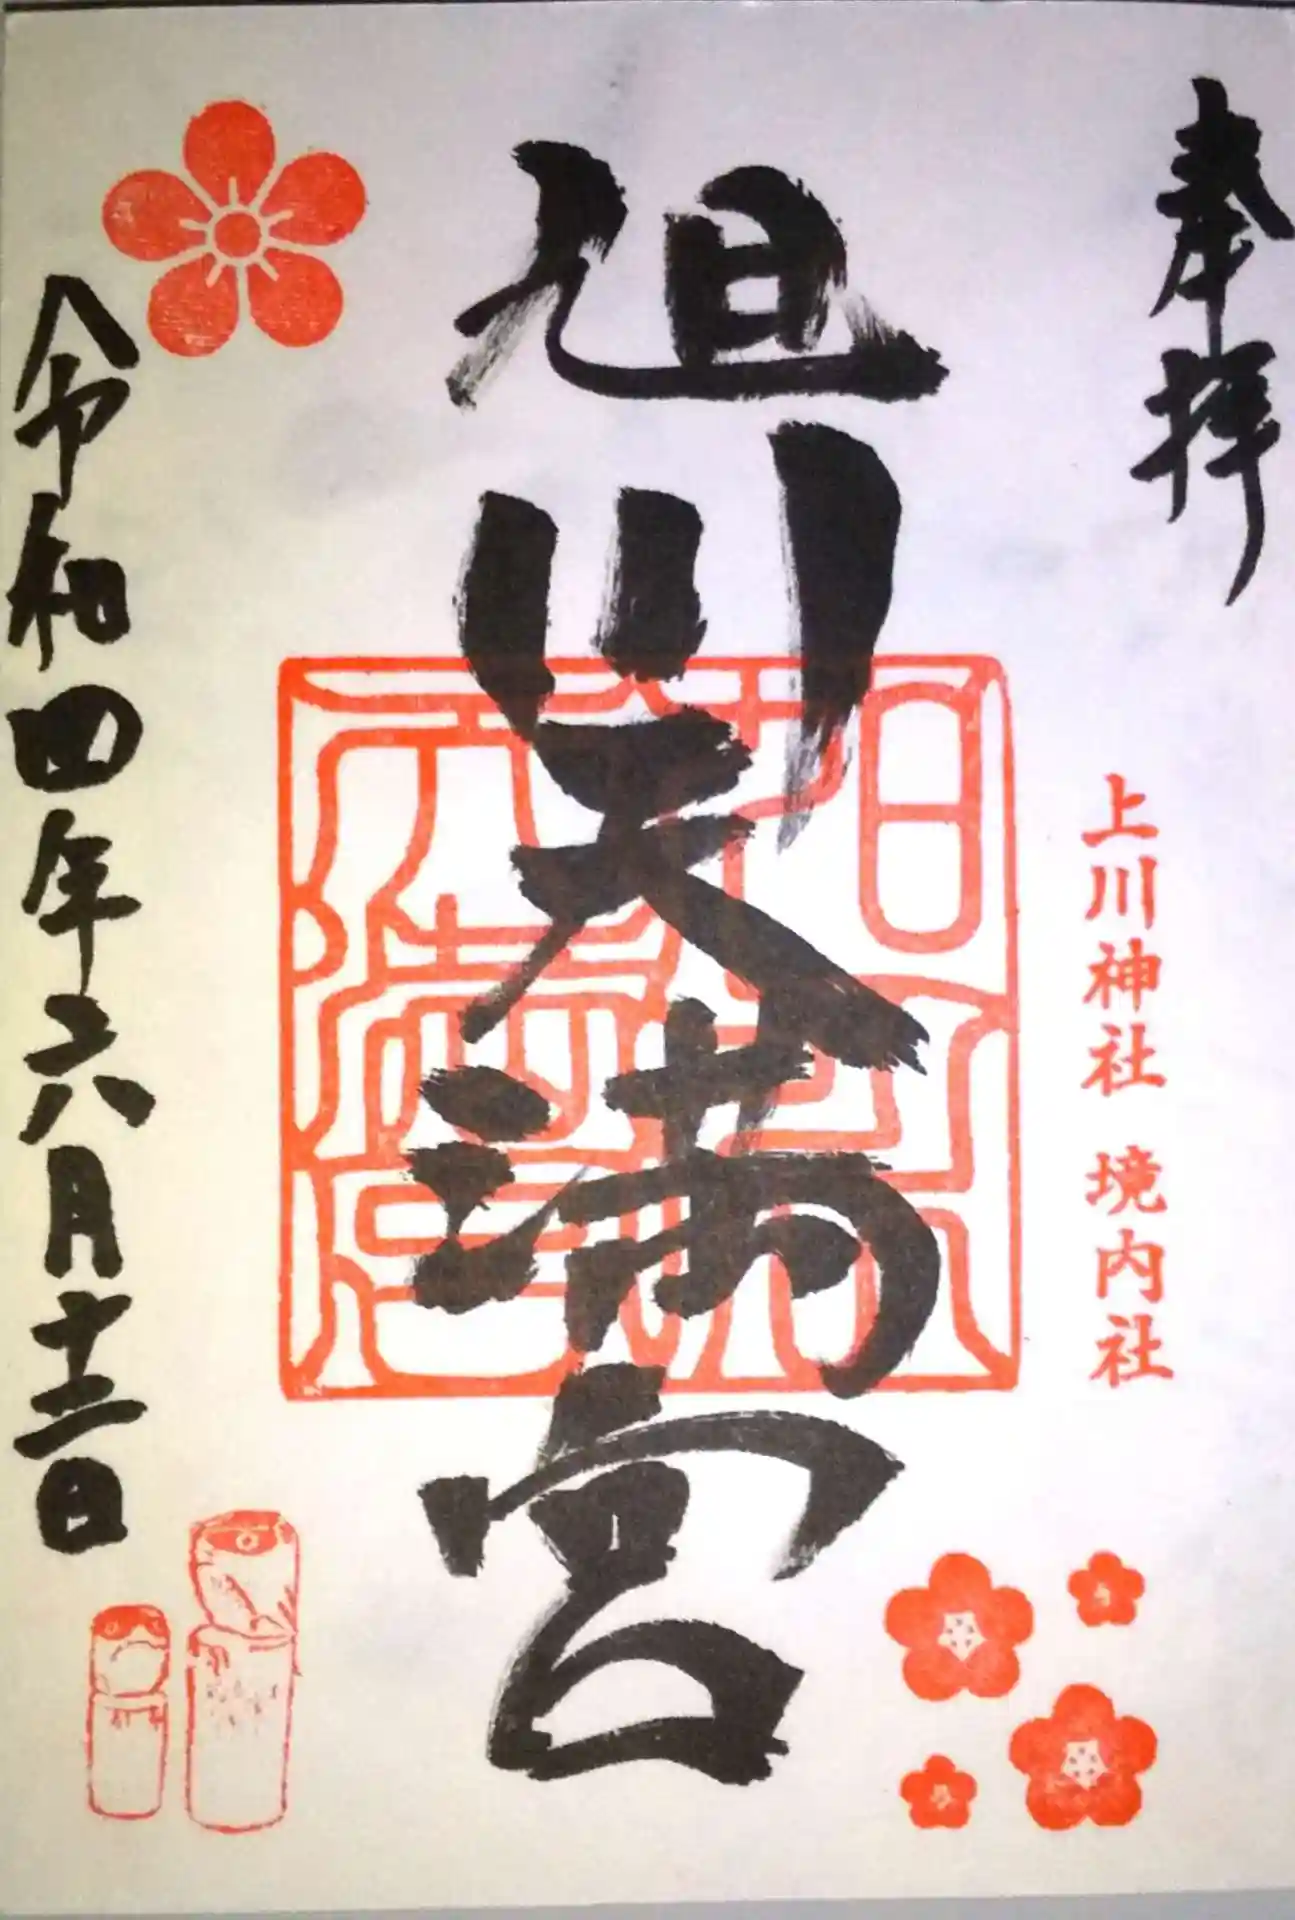 奉拝
上川神社 境内社
旭川天満宮
令和四年六月十二日